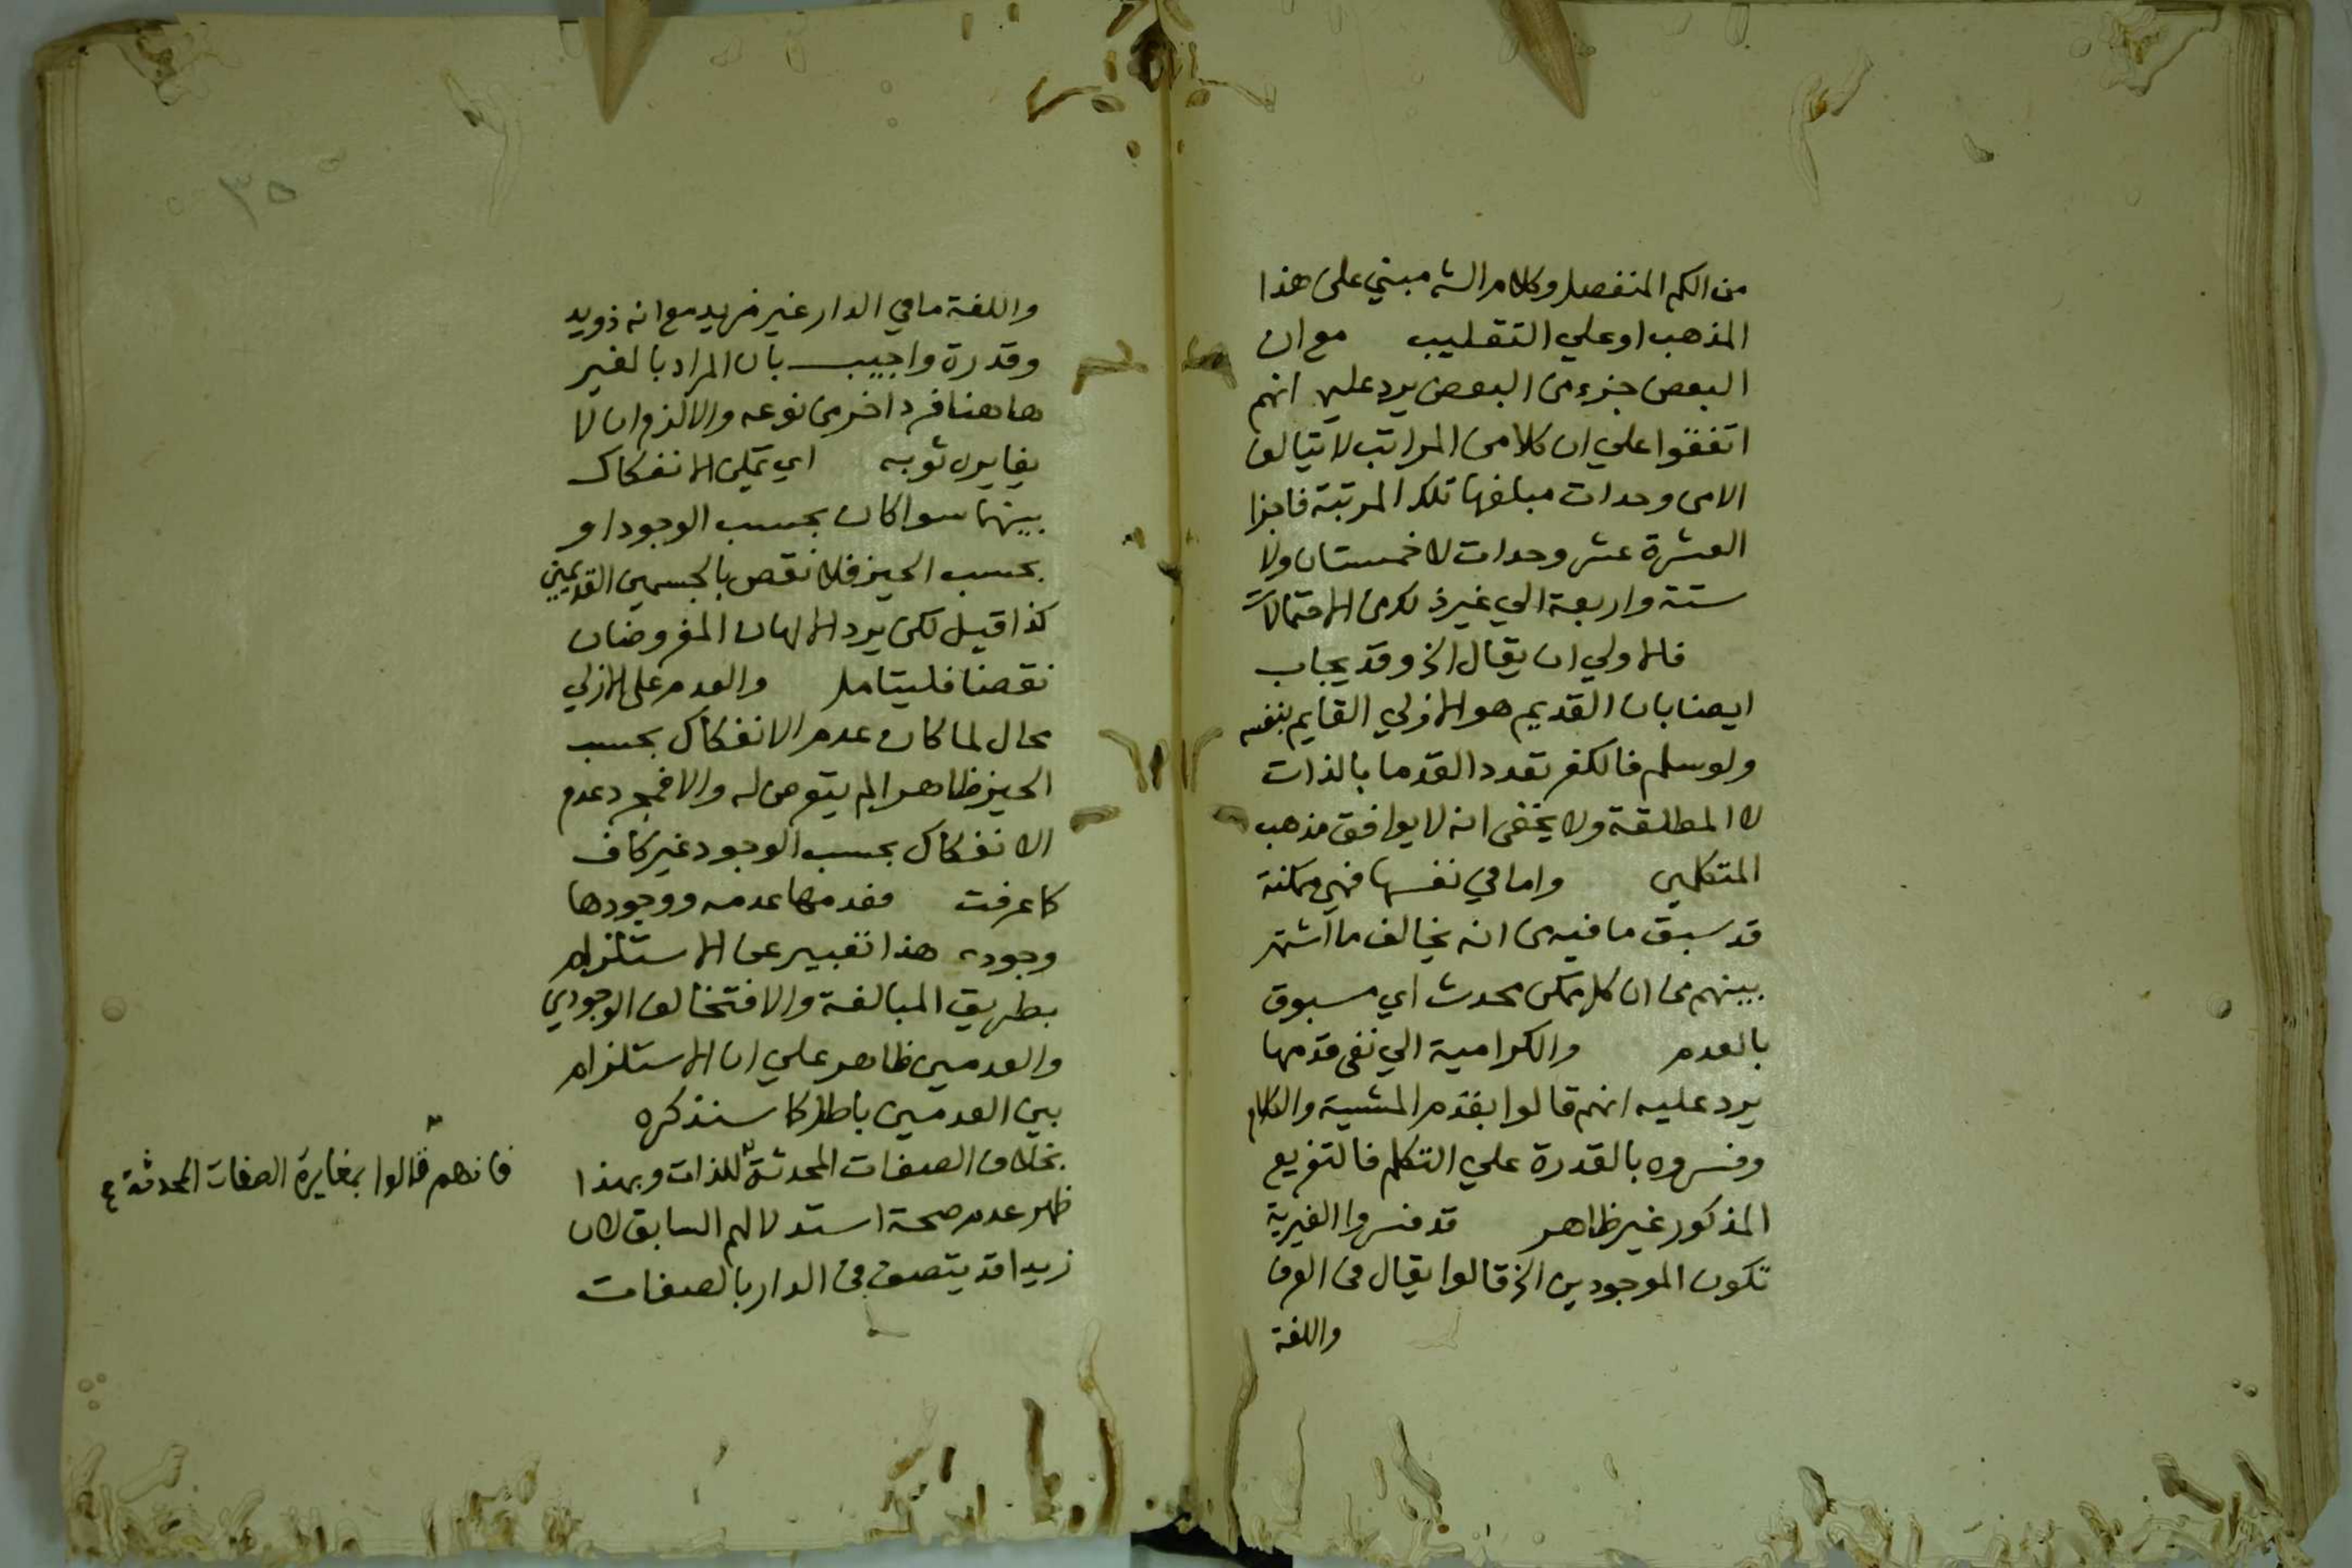 من الكم المنفصل وكلام الش مبني على هذا
المذهب او علي التغليب مع ان
البعض جزء من البعض يرد عليه انهم
اتفقوا علي ان كلا من المراتب لا يتالف
الا من وحدات مبلغها تلك المرتبة فاجزا
العشرة عشر وحدات لا خمستان ولا
ستة واربعة الي غير ذلك من الاحتمالات
فالاولي ان يقال الخ وقد يجاب
ايضا بان القديم هو الازلي القايم بنفسه
ولو سلم فالكفر تعدد القدما بالذات
لا المطلقة ولا يخفى انه لا يوافق مذهب
المتكلمين واما في نفسها فهي ممكنة
قد سبق ما فيه من انه يخالف ما اشتهر
بينهم من ان كل ممكن محدث اي مسبوق
بالعدم والكرامية الي نفى قدمها
يرد عليه انهم قالوا بقدم المشية والكلام
وفسروه بالقدرة علي التكلم فالتفريع
المذكور غير ظاهر قد فسروا الغيرية
بكون الموجودين الخ قالوا يقال في العرف
واللغة
واللغة ما في الدار غير زيد مع انه ذو يد
وقدرة واجيب بان المراد بالغير
هاهنا فرد اخر من نوعه والا لزم ان لا
يغايره ثوبه اي يمكن الانفكاك
بينهما سوا كان بحسب الوجود او
بحسب الحيز فلا نقض بالجسمين القديمين
كذا قيل لكن يرد الالهان المفروضان
نقضا فليتامل والعدم على الازلي
محال لما كان عدم الانفكاك بحسب
الحيز ظاهرا لم يتعرض له والا فمجرد عدم
الانفكاك بحسب الوجود غير كاف
كما عرفت فعدمها عدمه ووجودها
وجوده هذا تعبير عن الاستلزام
بطريق المبالغة والا فتخالف الوجودي
والعدمين ظاهر علي ان الاستلزام
بين العدمين باطل كما سنذكره
بخلاف الصفات المحدثة للذات وبهذا
فانهم قالوا بمغايرة الصفات المحدثة
ظهر عدم صحة استدلالهم السابق لان
زيدا قد يتصف في الدار بالصفات
٣٥